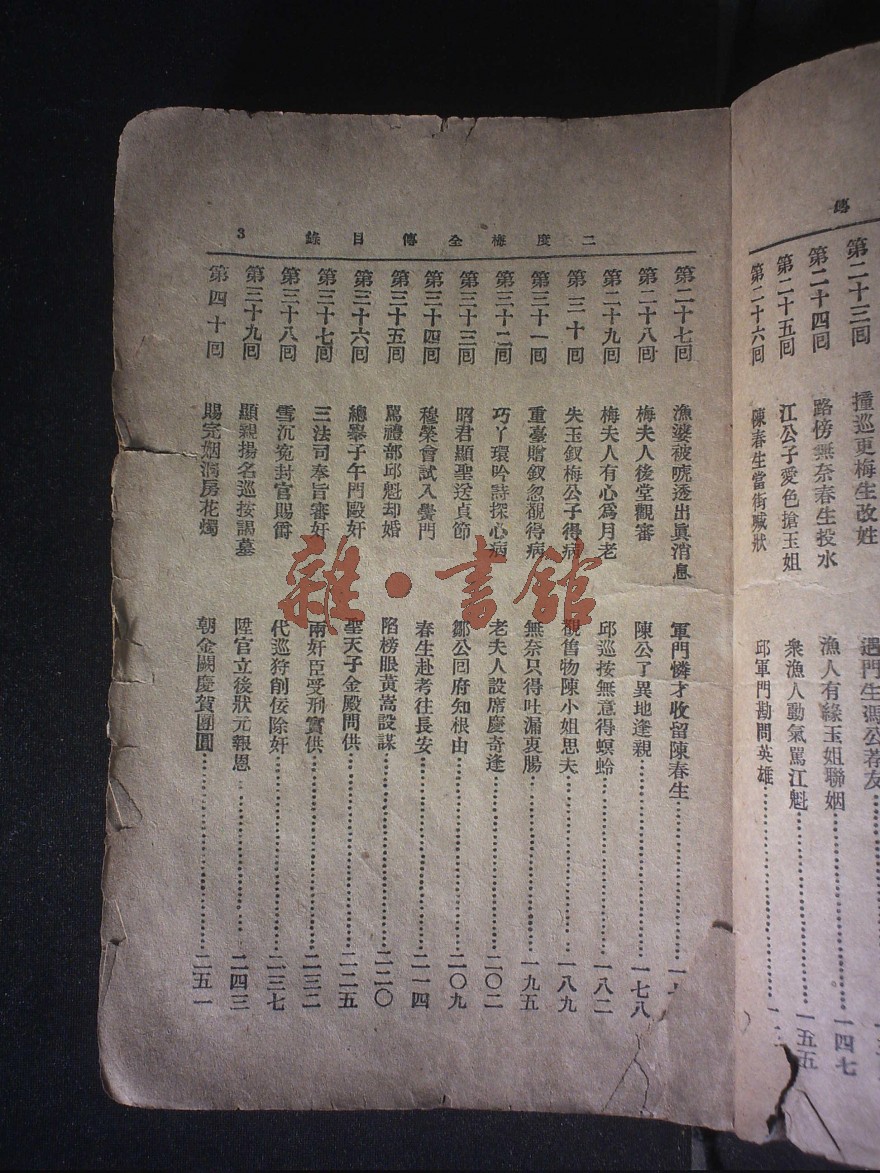 傳
第二十三回 撞巡更梅生改姓 遇門生馮公荐友
第二十四回 路傍無奈春生投水 漁人有緣玉姐聯姻 一四七
第二十五回 江公子愛色搶玉姐 衆漁人動氣罵江魁 一五五
第二十六回 陳春生當街喊狀 邱軍門勘問英雄
二度梅全傳目錄 3
第二十七回 漁婆被唬透出眞消息 軍門憐才收留陳春生
第二十八回 梅夫人後堂觀審 陳公子異地逢親 一七八
第二十九回 梅夫人有心爲月老 邱巡按無意得螟蛉 一八二
第三十回 失玉釵梅公子得病 覩舊物陳小姐思夫 一八九
第三十一回 重臺贈釵忽覩得病 無奈只得吐漏衷腸 一九五
第三十二回 巧丫環吟詩探心病 老夫人設席慶奇逢 二〇二
第三十三回 昭君顯聖送貞節 鄒公回府知根由 二〇九
第三十四回 穆榮會試入黌門 春生赴考往長安 二一四
第三十五回 罵禮部邱魁却婚 陷榜眼黃嵩設謀 二二〇
第三十六回 總舉子午門毆奸 聖天子金殿問供 二二五
第三十七回 三法司奉旨審奸 兩奸臣受刑實供 二三二
第三十八回 雪沉寃封官賜爵 代巡狩削佞除奸 二三七
第三十九回 顯親揚名巡按謁墓 陞官立後狀元報恩 二四三
第四十回 賜完姻洞房花燭 朝金闕慶賀團圓 二五一
雜·書館